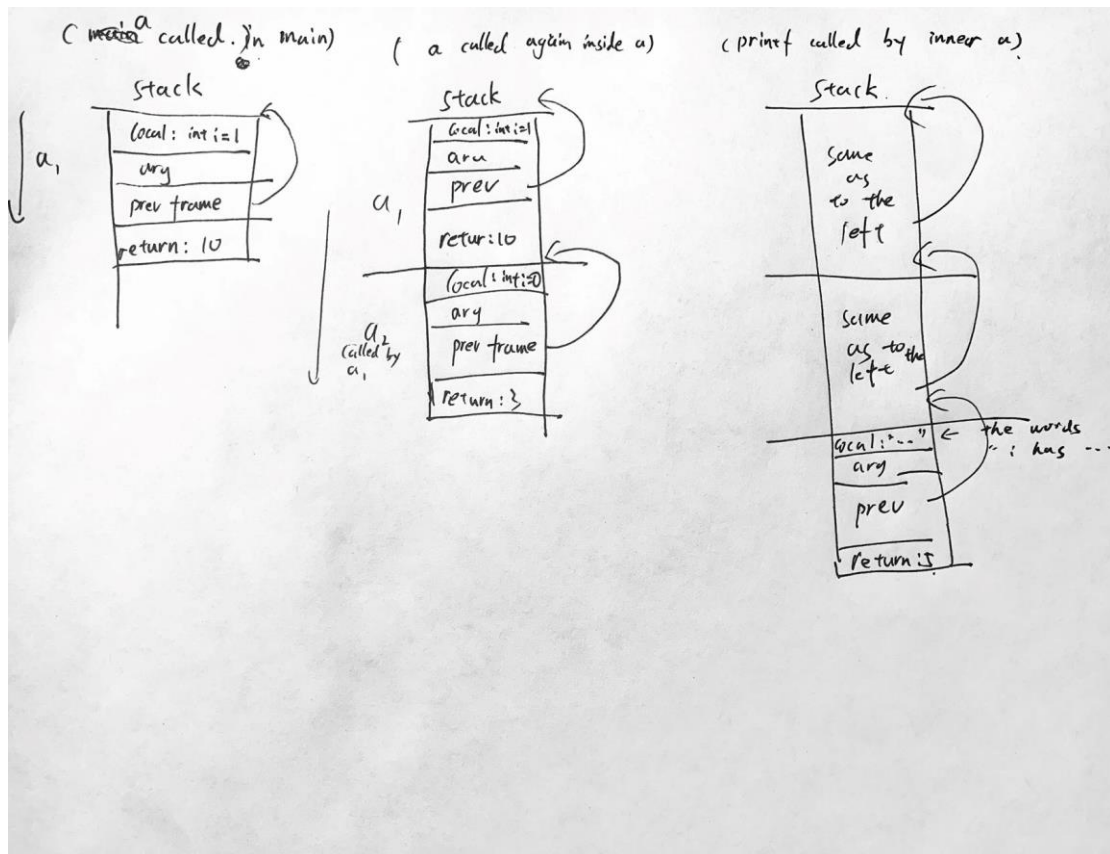 ( a called in main)
Stack
a1
local: int i=1
arg
prev frame
return: 10
( a called again inside a)
Stack
local: int i=1
arg
prev
a1
retur: 10
local: int i=0
arg
a2
called by
a1
prev frame
return: 3
(printf called by inner a)
Stack.
same
as
to the
left
same
as to the
left
local: "--"
← the words
"i has ---
arg
prev
return: 5